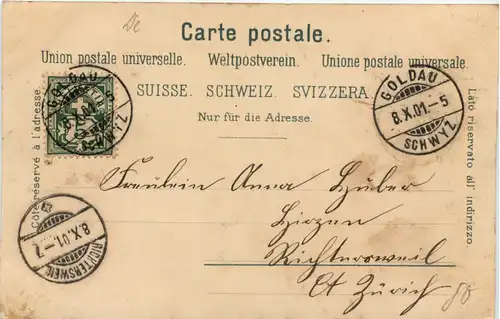 De
Carte postale.
Union postale universelle. Weltpostverein. Unione postale universale.
SUISSE. SCHWEIZ. SVIZZERA.
Nur für die Adresse.
Côté réservé à l'adresse.
Lato riservato all' indirizzo.
GOLDAU
SCHWYZ
GOLDAU
8.X.01.-5
SCHWYZ
RICHTERSWEIL
8.X.01.-7
Fräulein Anna Huber
Hirzen
Richtersweil
Ct Zürich